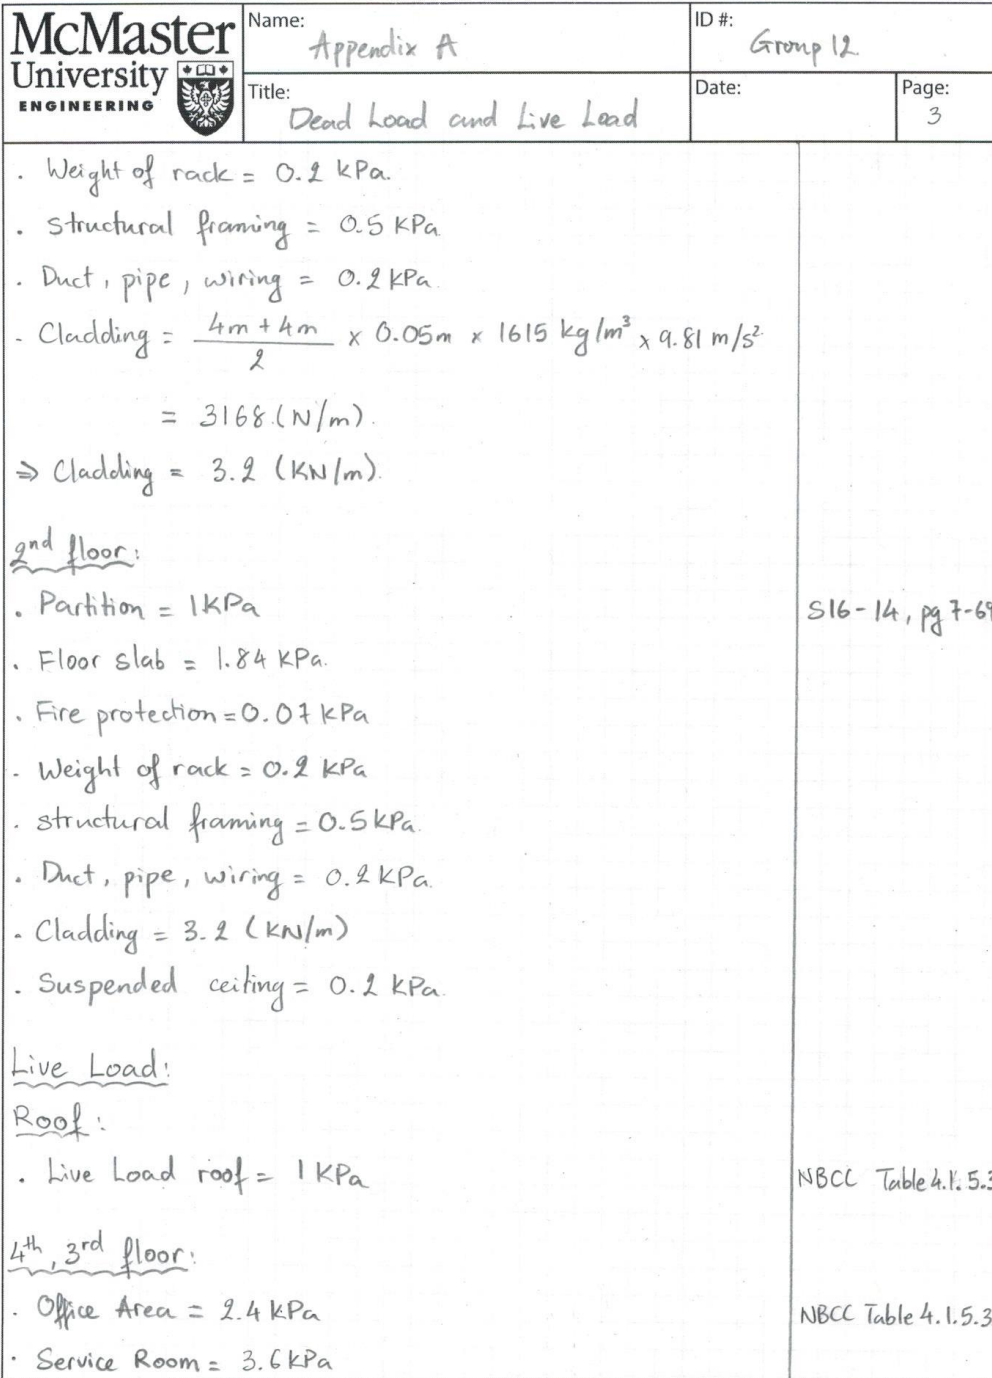 McMaster
University
ENGINEERING
Name:
Appendix A
ID #:
Group 12
Title:
Dead Load and Live Load
Date:
Page:
3
. Weight of rack = 0.2 kPa.
. Structural framing = 0.5 KPa.
. Duct, pipe, wiring = 0.2 kPa.
- Cladding = (4m + 4m)/2 × 0.05m × 1615 kg/m³ × 9.81 m/s²
= 3168 (N/m).
⇒ Cladding = 3.2 (KN/m).
2nd floor:
. Partition = 1KPa S16-14, pg 7-69
. Floor slab = 1.84 kPa.
. Fire protection = 0.07 kPa
. Weight of rack = 0.2 kPa
. structural framing = 0.5 kPa.
. Duct, pipe, wiring = 0.2 kPa.
. Cladding = 3.2 (KN/m)
. Suspended ceiling = 0.2 kPa.
Live Load:
Roof:
. Live Load roof = 1 KPa NBCC Table 4.1.5.3
4th, 3rd floor:
. Office Area = 2.4 kPa NBCC Table 4.1.5.3
. Service Room = 3.6 kPa